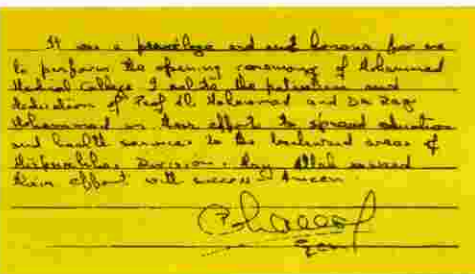 It was a privilege and great honour for me
to perform the opening ceremony of Mohammad
Medical College I salute the patriotism and
dedication of Prof Ali Mohammad and Dr Razi
Mohammad in their effort to spread education
and health services to the backward areas of
Mirpurkhas Division. May Allah reward
their effort with success Ameen